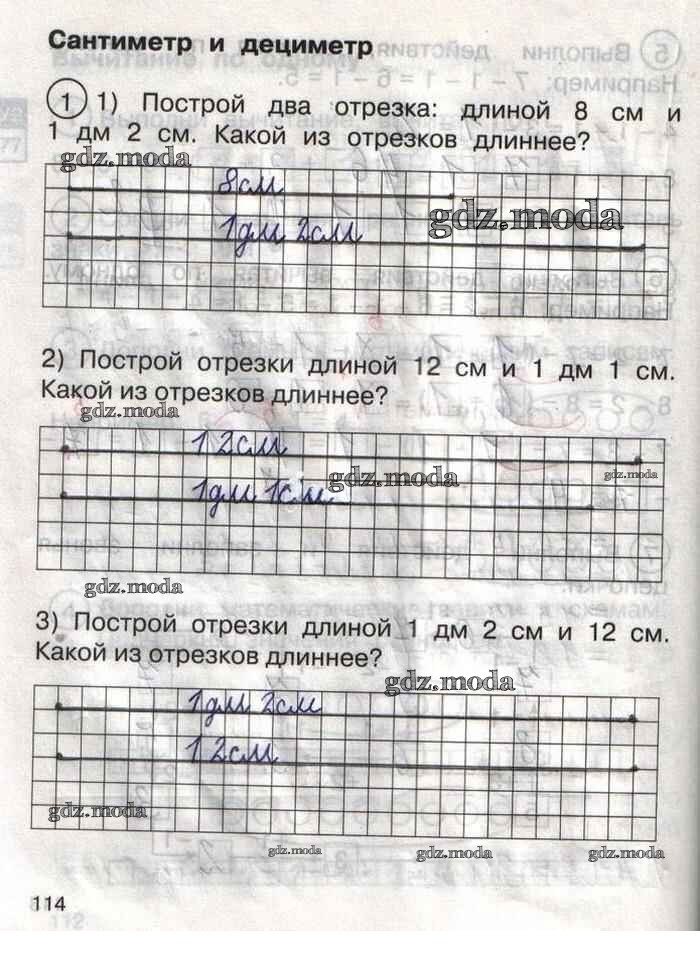 Сантиметр и дециметр
1 1) Построй два отрезка: длиной 8 см и
1 дм 2 см. Какой из отрезков длиннее?
gdz.moda
8см
gdz.moda
1дм 2см
2) Построй отрезки длиной 12 см и 1 дм 1 см.
Какой из отрезков длиннее?
gdz.moda
12см
gdz.moda
gdz.moda
1дм 1см
gdz.moda
3) Построй отрезки длиной 1 дм 2 см и 12 см.
Какой из отрезков длиннее?
gdz.moda
1дм 2см
12см
gdz.moda
gdz.moda gdz.moda gdz.moda
114